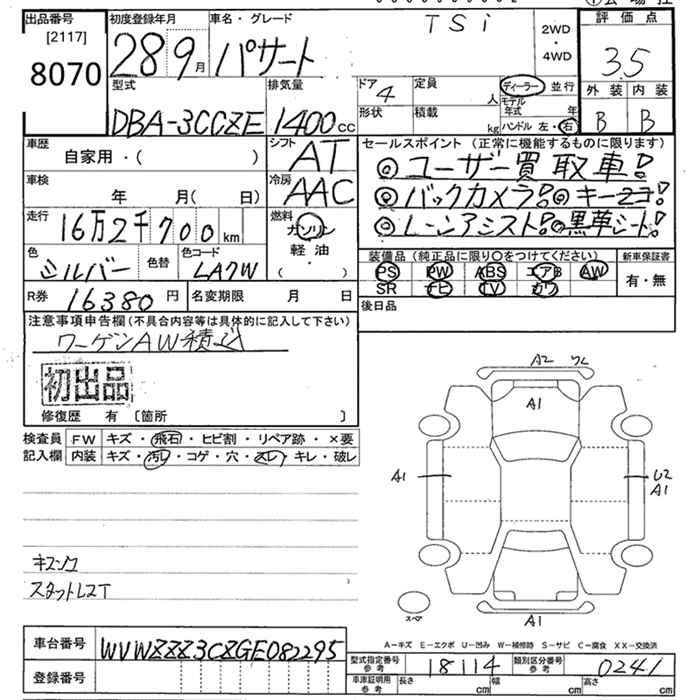 出品番号 初度登録年月 車名・グレード TSi 2WD・4WD 評価点
[2117]
8070 28 9月 パサート 3.5
型式 排気量 ドア 4 定員 人 ディーラー 並行 外装 内装
DBA-3CCZE 1400cc 形状 積載 kg モデル年式 年 ハンドル 左・右 B B
車歴 シフト AT セールスポイント (正常に機能するものに限ります)
自家用・( ) ◎ユーザー買取車!
車検 冷房 AAC ◎バックカメラ!◎キー2コ!
年 月( 日) ◎レーンアシスト!◎黒革シート!
走行 16万2千700km 燃料 ガソリン 軽油 ・( )
色 シルバー 色替 色コード LA7W 装備品 (純正品に限り○をつけてください) 新車保証書
PS PW ABS エアB AW 有・無
R券 16380円 名変期限 月 日 SR ナビ TV カワ
後日品
注意事項申告欄(不具合内容等は具体的に記入して下さい)
ワーゲンAW積込
初出品
修復歴 有 〔箇所 〕
検査員 FW キズ・飛石・ヒビ割・リペア跡・×要
記入欄 内装 キズ・汚レ・コゲ・穴・スレ・キレ・破レ
A2
A1
A1
U2
A1
スペア
A1
スタットレスT
A－キズ E－エクボ U－凹み W－補修跡 S－サビ C－腐食 XX－交換済
車台番号 WVWZZZ3CZGE082295
型式指定番号 参考 18114 類別区分番号 参考 0241
登録番号
車庫証明用 参考 長さ cm 幅 cm 高さ cm